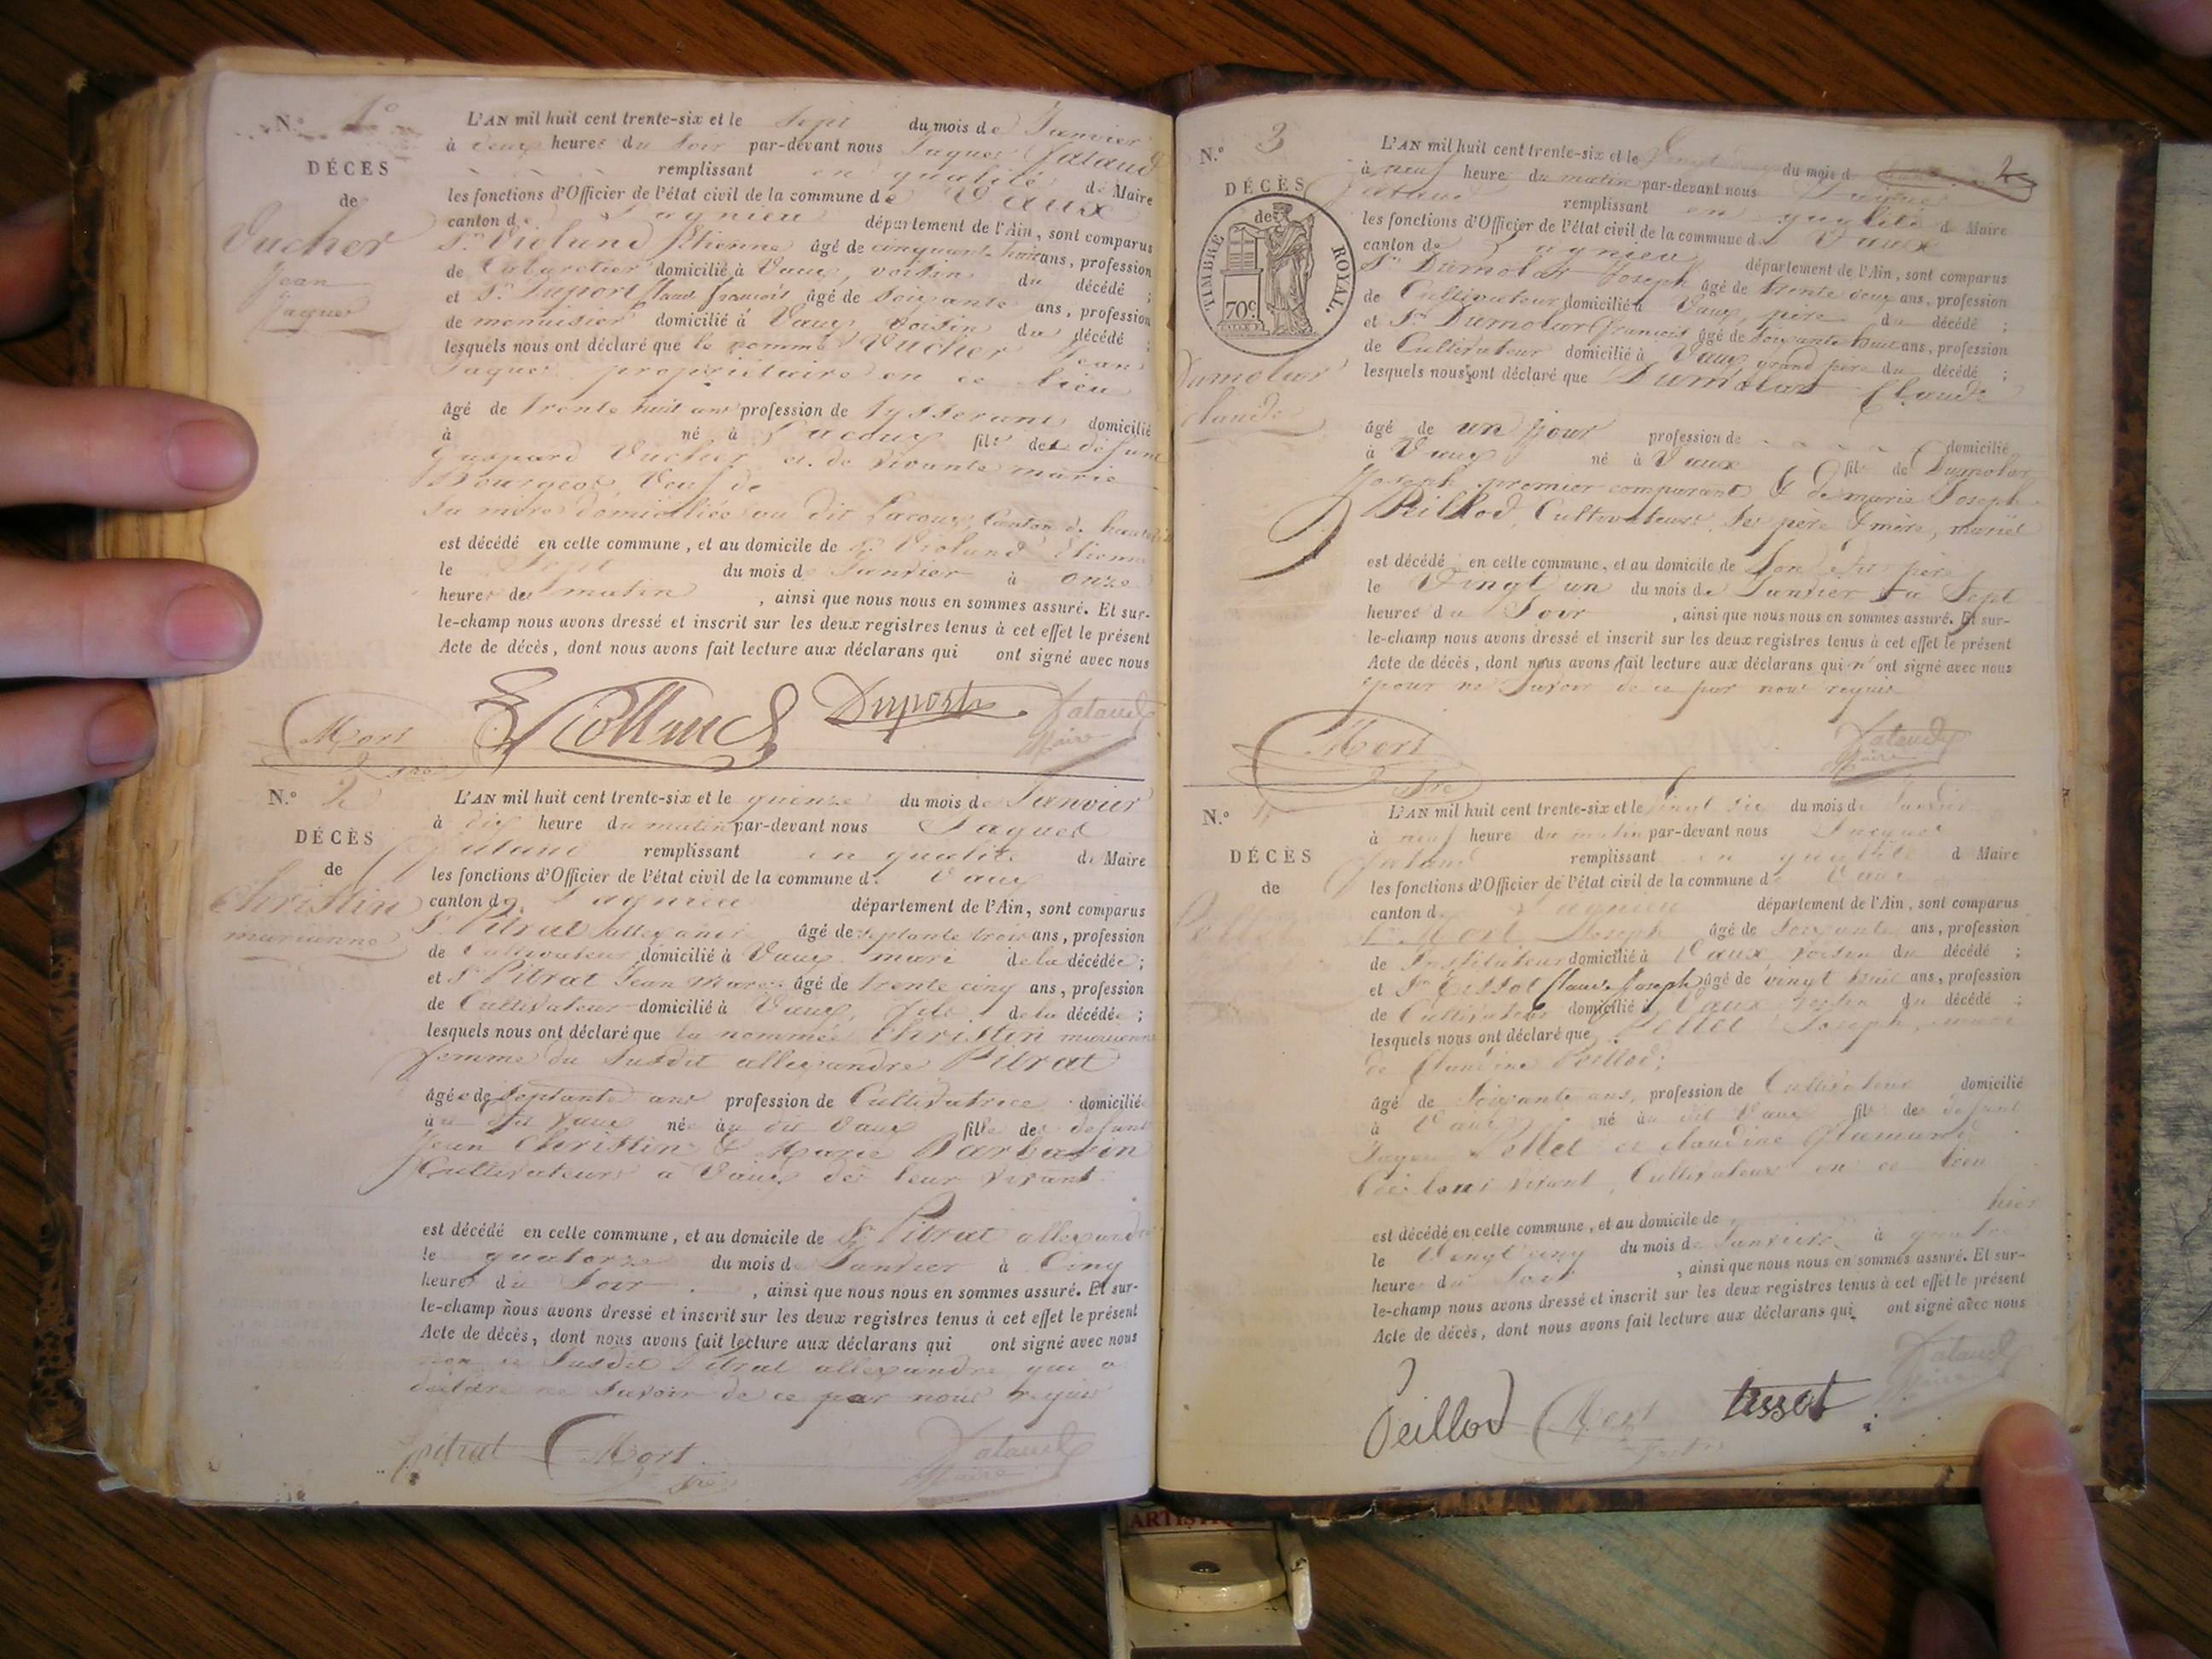 N.° 1°
DÉCÈS
de
Vucher
Jean
Jaques
L'AN mil huit cent trente-six et le Sept du mois de Janvier
à deux heures du Soir par-devant nous Jaques Jataud
remplissant en qualité de Maire
les fonctions d'Officier de l'état civil de la commune de Vaux
canton de Lagnieu département de l'Ain, sont comparus
Sr. Violand Etienne âgé de cinquante trois ans, profession
de Cabaretier domicilié à Vaux, voisin du décédé ;
et Sr. Duport Claude françois âgé de Soixante ans, profession
de menuisier domicilié à Vaux, voisin du décédé ;
lesquels nous ont déclaré que le nommé Vucher Jean
Jaques propriétaire en ce lieu
âgé de trente huit ans profession de tysserant domicilié
à né à Lacoux fils de défunt
Gaspard Vucher et de vivante marie
Bourgeos, Veuf de
Sa mère domiciliée au dit Lacoux, Canton de
est décédé en celle commune, et au domicile de Sr. Violand Etienne
le Sept du mois de Janvier à onze
heures de matin , ainsi que nous nous en sommes assuré. Et sur-
le-champ nous avons dressé et inscrit sur les deux registres tenus à cet effet le présent
Acte de décès, dont nous avons fait lecture aux déclarans qui ont signé avec nous
Mort Violland Duport Jataud
Sre Maire
N.° 2
DÉCÈS
de
Christin
marianne
L'AN mil huit cent trente-six et le quinze du mois de Janvier
à dix heure du matin par-devant nous Jaques
Jataud remplissant en qualité de Maire
les fonctions d'Officier de l'état civil de la commune de Vaux
canton de Lagnieu département de l'Ain, sont comparus
Sr. Pitrat âgé de septante trois ans, profession
de Cultivateur domicilié à Vaux mari de la décédée ;
et Sr Pitrat Jean Marie âgé de trente cinq ans, profession
de Cultivateur domicilié à Vaux, fils de la décédée ;
lesquels nous ont déclaré que la nommée Christin marianne
femme du Susdit allexandre Pitrat
âgée de Septante ans profession de Cultivatrice domiciliée
au dit Vaux née au dit Vaux fille de défunt
Jean Christin & Marie Barbarin
Cultivateurs à Vaux dès leur vivant
est décédé en celle commune, et au domicile de Sr Pitrat allexandre
le quatorze du mois de Janvier à Cinq
heures du Soir , ainsi que nous nous en sommes assuré. Et sur-
le-champ nous avons dressé et inscrit sur les deux registres tenus à cet effet le présent
Acte de décès, dont nous avons fait lecture aux déclarans qui ont signé avec nous
non le Susdit Pitrat allexandre qui a
déclaré ne Savoir de ce par nous requis
pitrat Mort Jataud
Sre Maire
2
N.° 3
DÉCÈS
de
TIMBRE ROYAL.
70c
Dumolar
Claude
L'AN mil huit cent trente-six et le Vingt du mois d
à neuf heure du matin par-devant nous Jaques
Jataud remplissant en qualité d Maire
les fonctions d'Officier de l'état civil de la commune d Vaux
canton de Lagnieu département de l'Ain, sont comparus
Sr. Dumolar Joseph âgé de trente deux ans, profession
de Cultivateur domicilié à Vaux père du décédé ;
et Sr. Dumolar françois âgé de Soixante huit ans, profession
de Cultivateur domicilié à Vaux grand père du décédé ;
lesquels nous ont déclaré que Dumolar Claude
âgé de un jour profession de domicilié
à Vaux né à Vaux fils de Dumolar
Joseph premier comparant & de marie Joseph
Peillod, Cultivateurs, Ses père & mère, mariés
est décédé en celle commune, et au domicile de Son dit père
le Vingt un du mois de Janvier à Sept
heures du Soir , ainsi que nous nous en sommes assuré. Et sur-
le-champ nous avons dressé et inscrit sur les deux registres tenus à cet effet le présent
Acte de décès, dont nous avons fait lecture aux déclarans qui n'ont signé avec nous
pour ne Savoir de ce par nous requis
Mort Jataud
Sre Maire
N.° 4
DÉCÈS
de
L'AN mil huit cent trente-six et le vingt six du mois de Janvier
à neuf heure du matin par-devant nous Jacques
Jataud remplissant en qualité d Maire
les fonctions d'Officier de l'état civil de la commune de Vaux
canton d Lagnieu département de l'Ain, sont comparus
Sr Mort Joseph âgé de Soixante ans, profession
de Instituteur domicilié à Vaux voisin du décédé ;
et Sr Tissot Claude Joseph âgé de vingt huit ans, profession
de Cultivateur domicilié à Vaux voisin du décédé ;
lesquels nous ont déclaré que Pellet Joseph, mari
de Claudine Peillod ;
âgé de Soixante ans, profession de Cultivateur domicilié
à Vaux né au dit Vaux fils de défunt
Pellet et claudine
vivant, Cultivateurs en ce lieu
est décédé en celle commune, et au domicile de hier
le Vingt cinq du mois de Janvier à quatre
heure du Soir , ainsi que nous nous en sommes assuré. Et sur-
le-champ nous avons dressé et inscrit sur les deux registres tenus à cet effet le présent
Acte de décès, dont nous avons fait lecture aux déclarans qui ont signé avec nous
Peillod Mort tissot Jataud
Maire